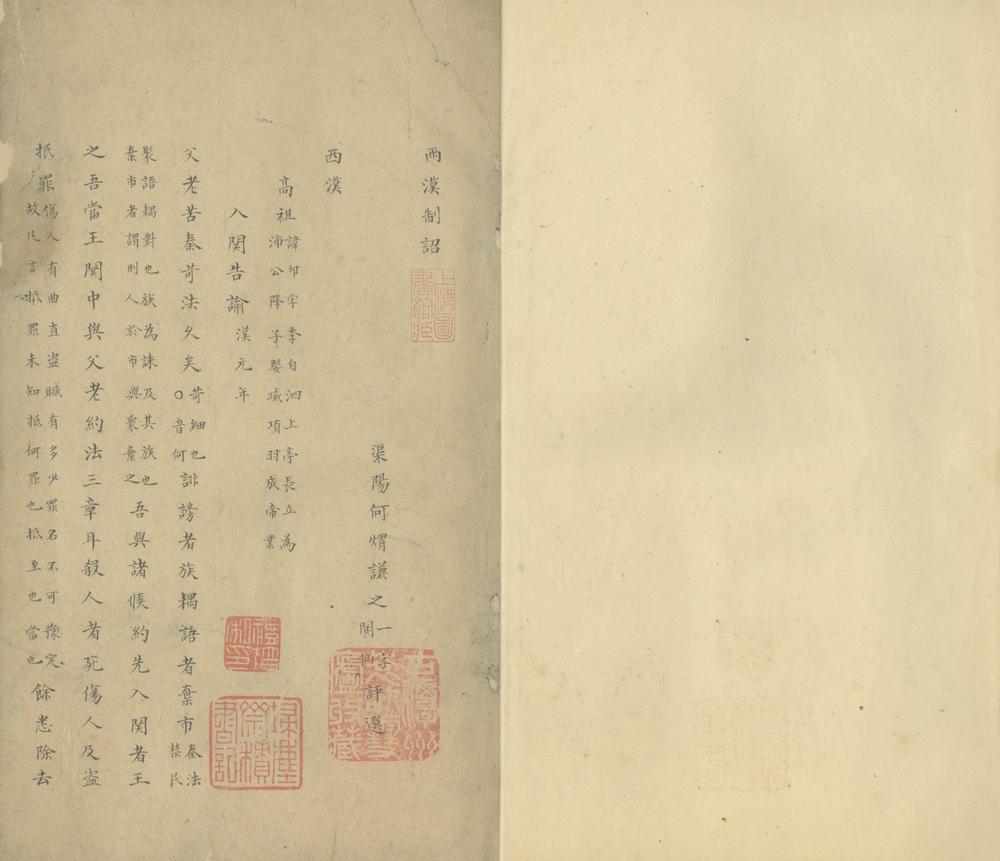 兩漢制詔
渠陽何焆謙之一字仙關評選
西漢
高祖諱邦字季自泗上亭長立為沛公降子嬰滅項羽成帝業
入関告諭漢元年
父老苦秦苛法久矣苛細也〇音何誹謗者族耦語者棄市秦法禁民
聚語耦對也族為誅及其族也棄市者謂刑人於市與衆棄之吾與諸侯約先入関者王
之吾當王関中與父老約法三章耳殺人者死傷人及盗
抵罪傷人有曲直盗贓有多少罪名不可豫定故凡言抵罪未知抵何罪也抵至也當也餘悉除去
上海圖書館藏